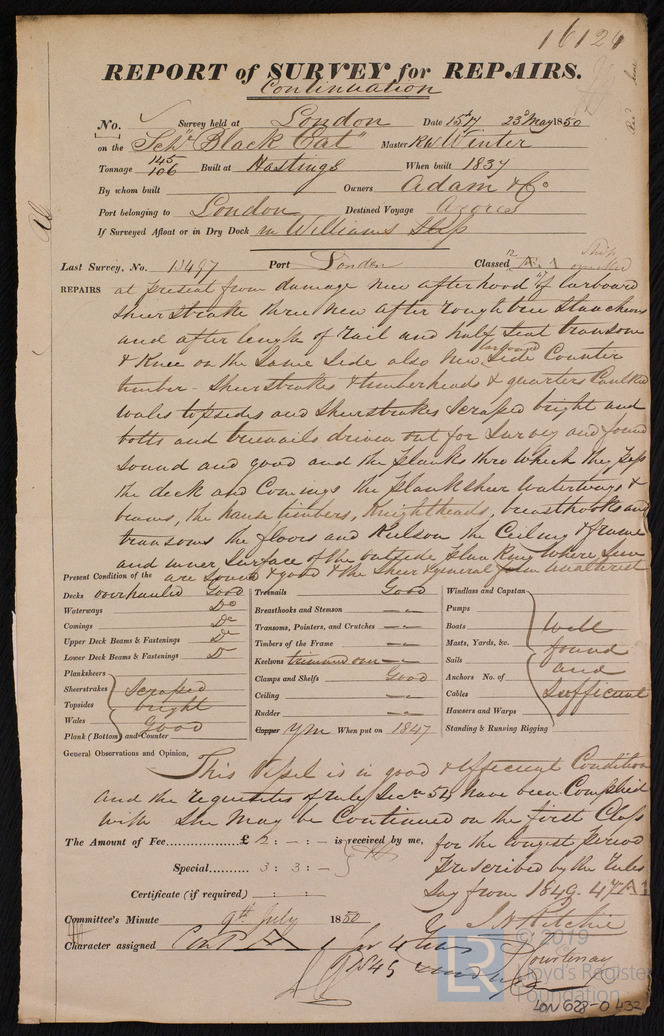 16124
REPORT of SURVEY for REPAIRS.
Continuation
No. Survey held at London Date 15th 23d May 1850
on the Schr "Black Cat" Master RW Winter
Tonnage 145/106 Built at Hastings When built 1837
By whom built Owners Adam & Co
Port belonging to London Destined Voyage Azores
If Surveyed Afloat or in Dry Dock in Williams Slip
Last Survey, No. 13497 Port London Classed 12 A 1
REPAIRS at present from damage new afterhood of larboard
sheerstrake three new after rough tree stauncheons
and after length of rail and half seat transom
& Knee on the same side also new starboard side Counter
timber - Sheerstrakes & timberheads & quarters Caulked
wales topsides and sheerstrakes scraped bright and
bolts and treenails driven out for survey and found
sound and good and the planks thro which they pass
the deck and Comings the planksheer waterways &
beams, the hause timbers, Knightheads, breasthooks and
transoms the floors and Keelson the Ceiling & frame
and inner surface of the outside planking where seen
are sound & good & the sheer general form unaltered
Present Condition of the
Decks overhauled Good
Waterways Do
Comings Do
Upper Deck Beams & Fastenings Do
Lower Deck Beams & Fastenings Do
Planksheers
Sheerstrakes
Topsides
Wales
Plank (Bottom) and Counter
scraped
bright
Good
Treenails Good
Breasthooks and Stemson
Transoms, Pointers, and Crutches
Timbers of the Frame
Keelsons
Clamps and Shelfs Good
Ceiling
Rudder
Copper YM When put on 1847
Windlass and Capstan
Pumps
Boats
Masts, Yards, &c.
Sails
Anchors No. of
Cables
Hawsers and Warps
Standing & Running Rigging
Well
found
and
Sufficient
General Observations and Opinion,
This Vessel is in good & efficient Condition
and the requisites of rule, Secn 54 have been Complied
with She may be Continued on the first Class
for the longest period
prescribed by the Rules
Say from 1849. 4 A 1
The Amount of Fee £ 2 : - : - is received by me,
Special 3 : 3 : -
Certificate (if required)
J H Ritchie
Courtenay
Committee's Minute 9th July 1850
Character assigned Cont A 1 for 4 Years
1849
© 2019
Lloyd's Register
Foundation
LR
LON 628-0432